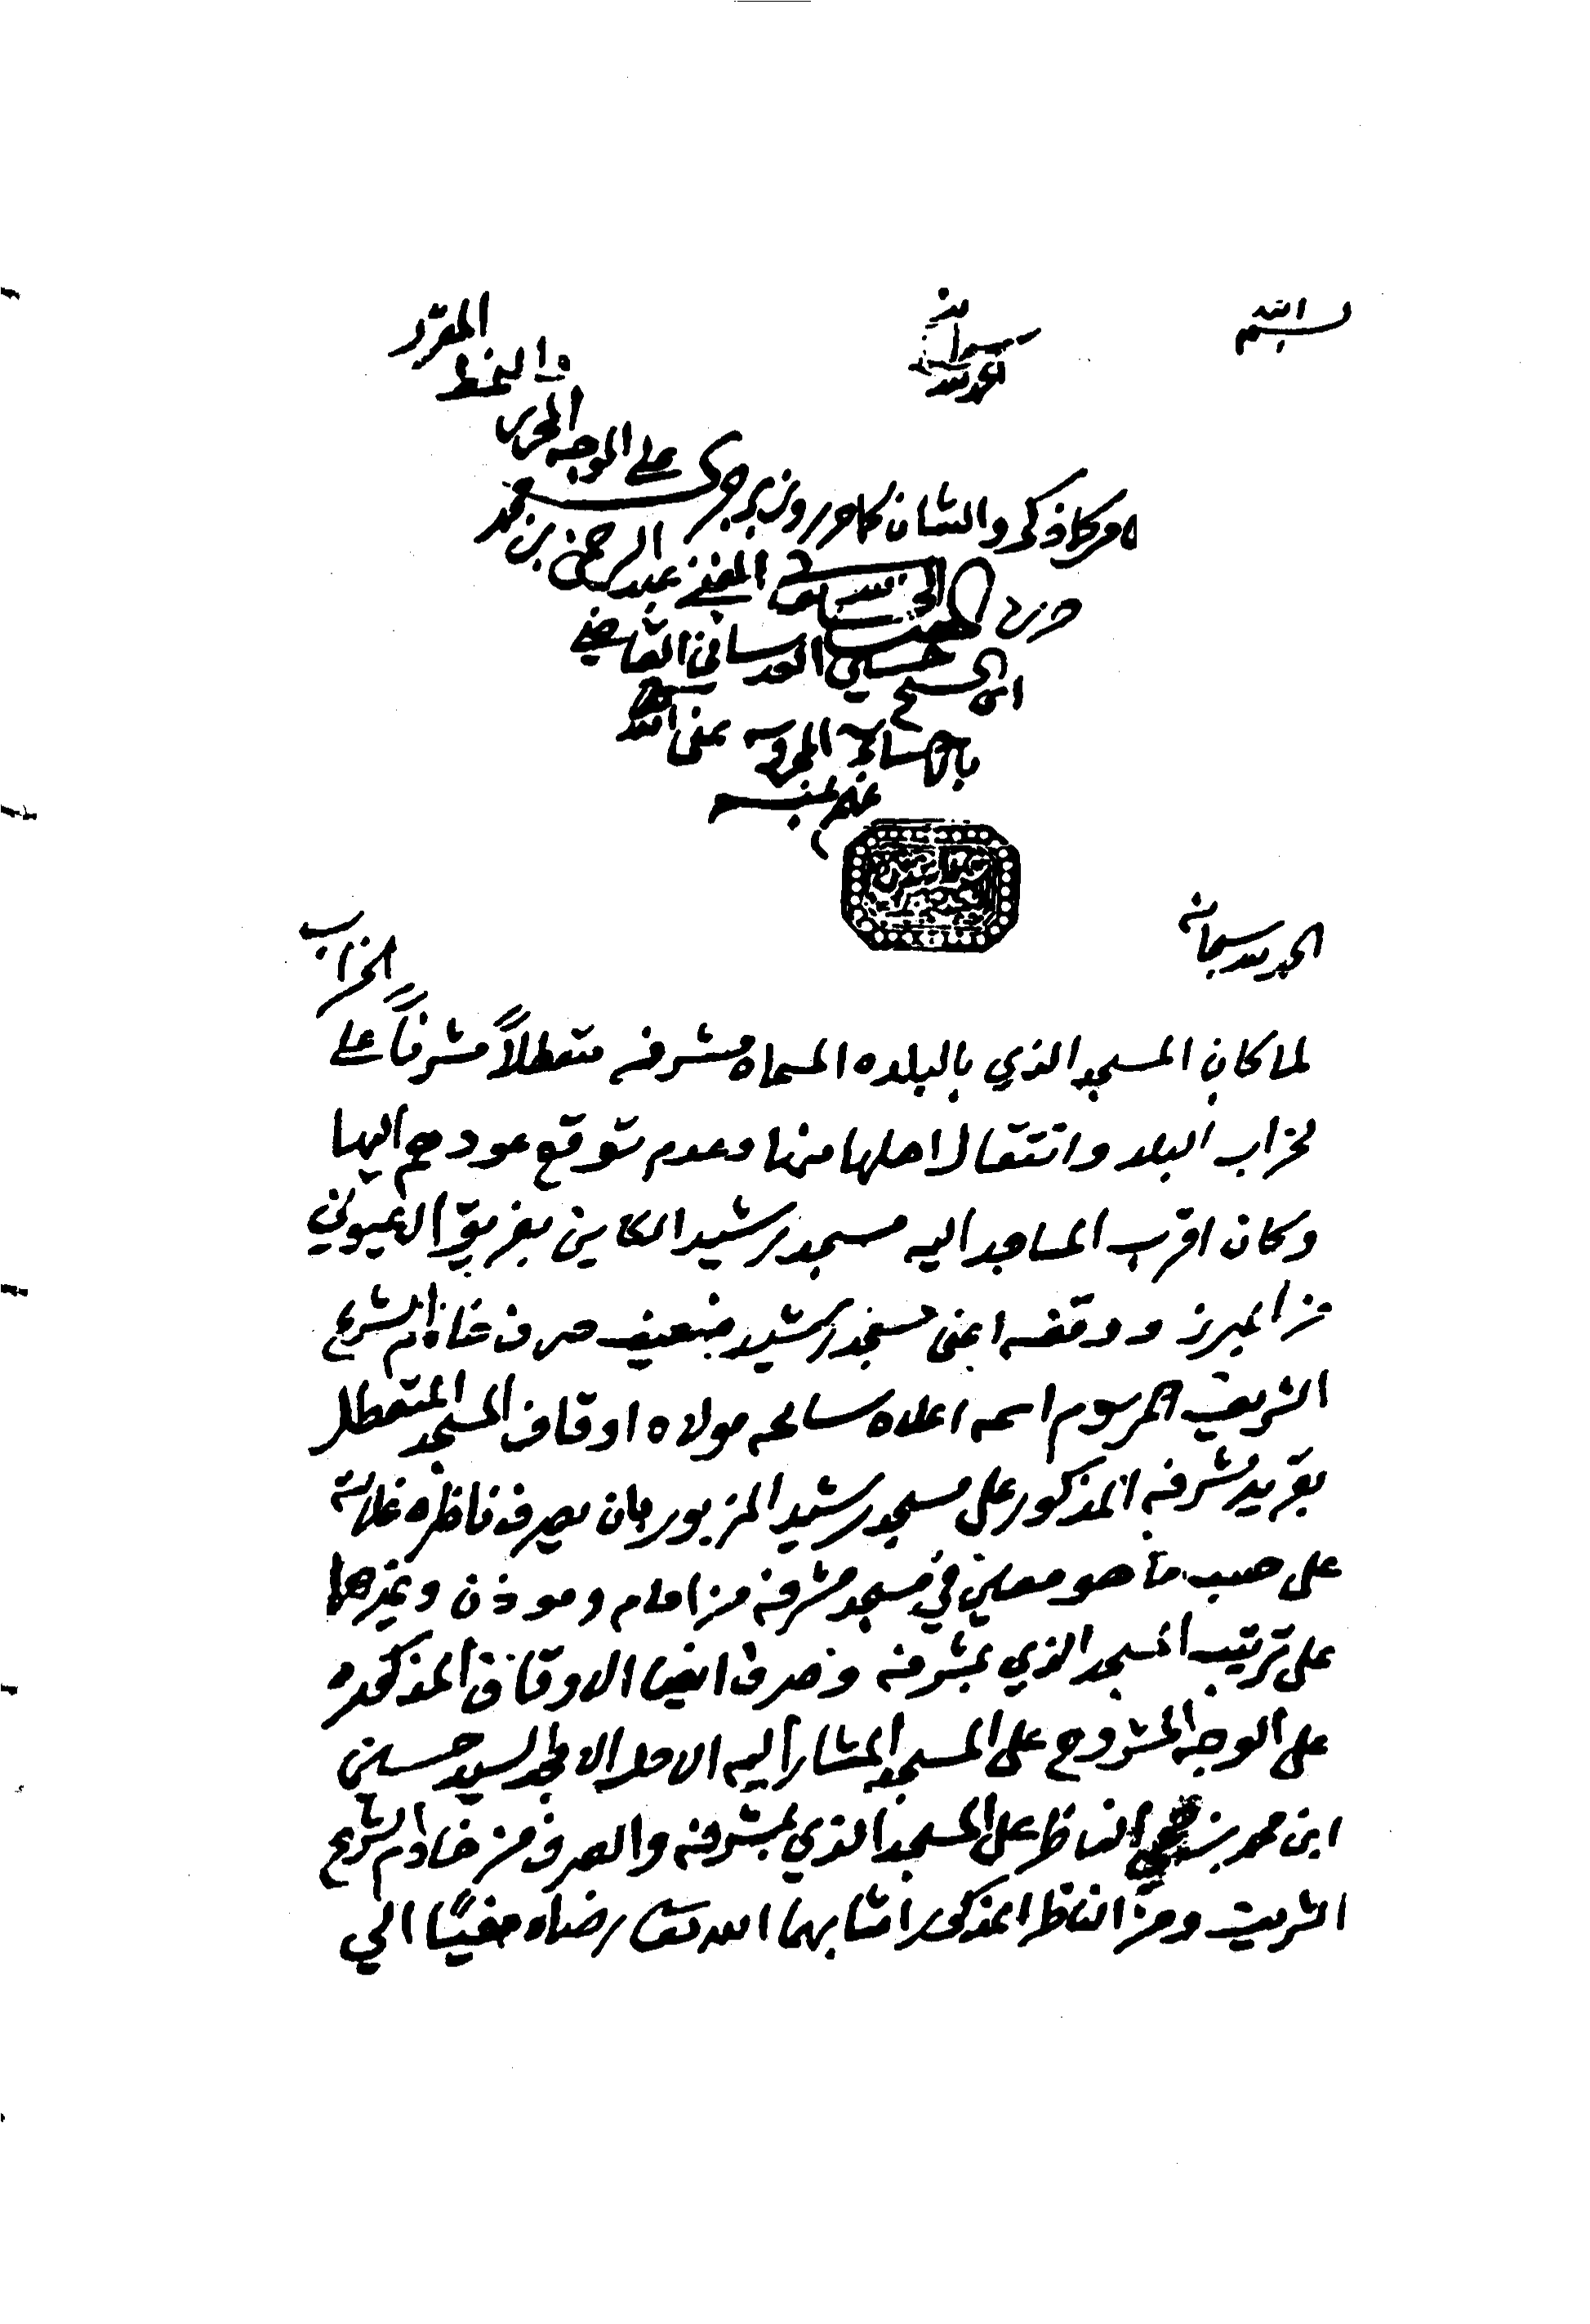 بسم الله
الحمد لله سبحانه
الامر كما ذكر والشان كما حرر وزبر جرى على الوجه المحرر
والنمط المقرر
حرره
المفتي عبد الرحمن بن محمد
القاضي
بالاحساء المحروسه عفى الله
عنه بمنه
الحمد لله سبحانه
لما كان المسجد الذي بالبلده المسماه مشرفه متعطلاً مشرفاً على الخراب
لخراب البلد وانتقال اهلها منها وعدم توقع عودهم اليها
وكان اقرب المساجد اليه مسجد رشيد الكاين بفريق العيوني
من المبرز ووقفه اعني مسجد رشيد ضعيف صرف خادم الشرع
الشريف المرسوم اسمه اعلاه سامحه مولاه اوقاف المسجد المتعطل
بقرية مشرفه المذكور على مسجد رشيد المزبور بان يصرف ناظره غلاته
على حسب ما هو معين في مسجد مشرفه من امام وموذن وغيرهما
على ترتيب المسجد الذي بمشرفه وصرف ايضا الاوقاف المذكوره
على الوجه المشروح على المسجد المشار اليه الاجل الامجد السيد حسين
ابن محمد بن الناظر على المسجد الذي بمشرفه والصرف من خادم الشرع
الشريف ومن الناظر المذكور اثابهما الله تعالى رضاه مفيئا الى